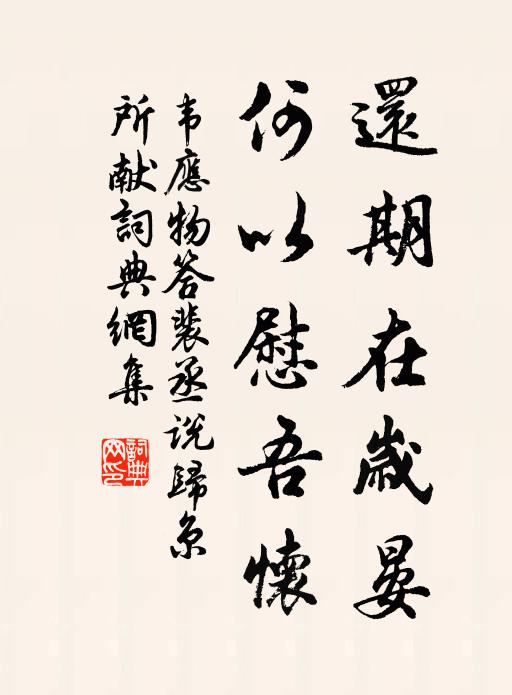 還期在歲晏
何以慰吾懷
韦應物答裴丞说歸京
所献詞典網集
詞典
网印